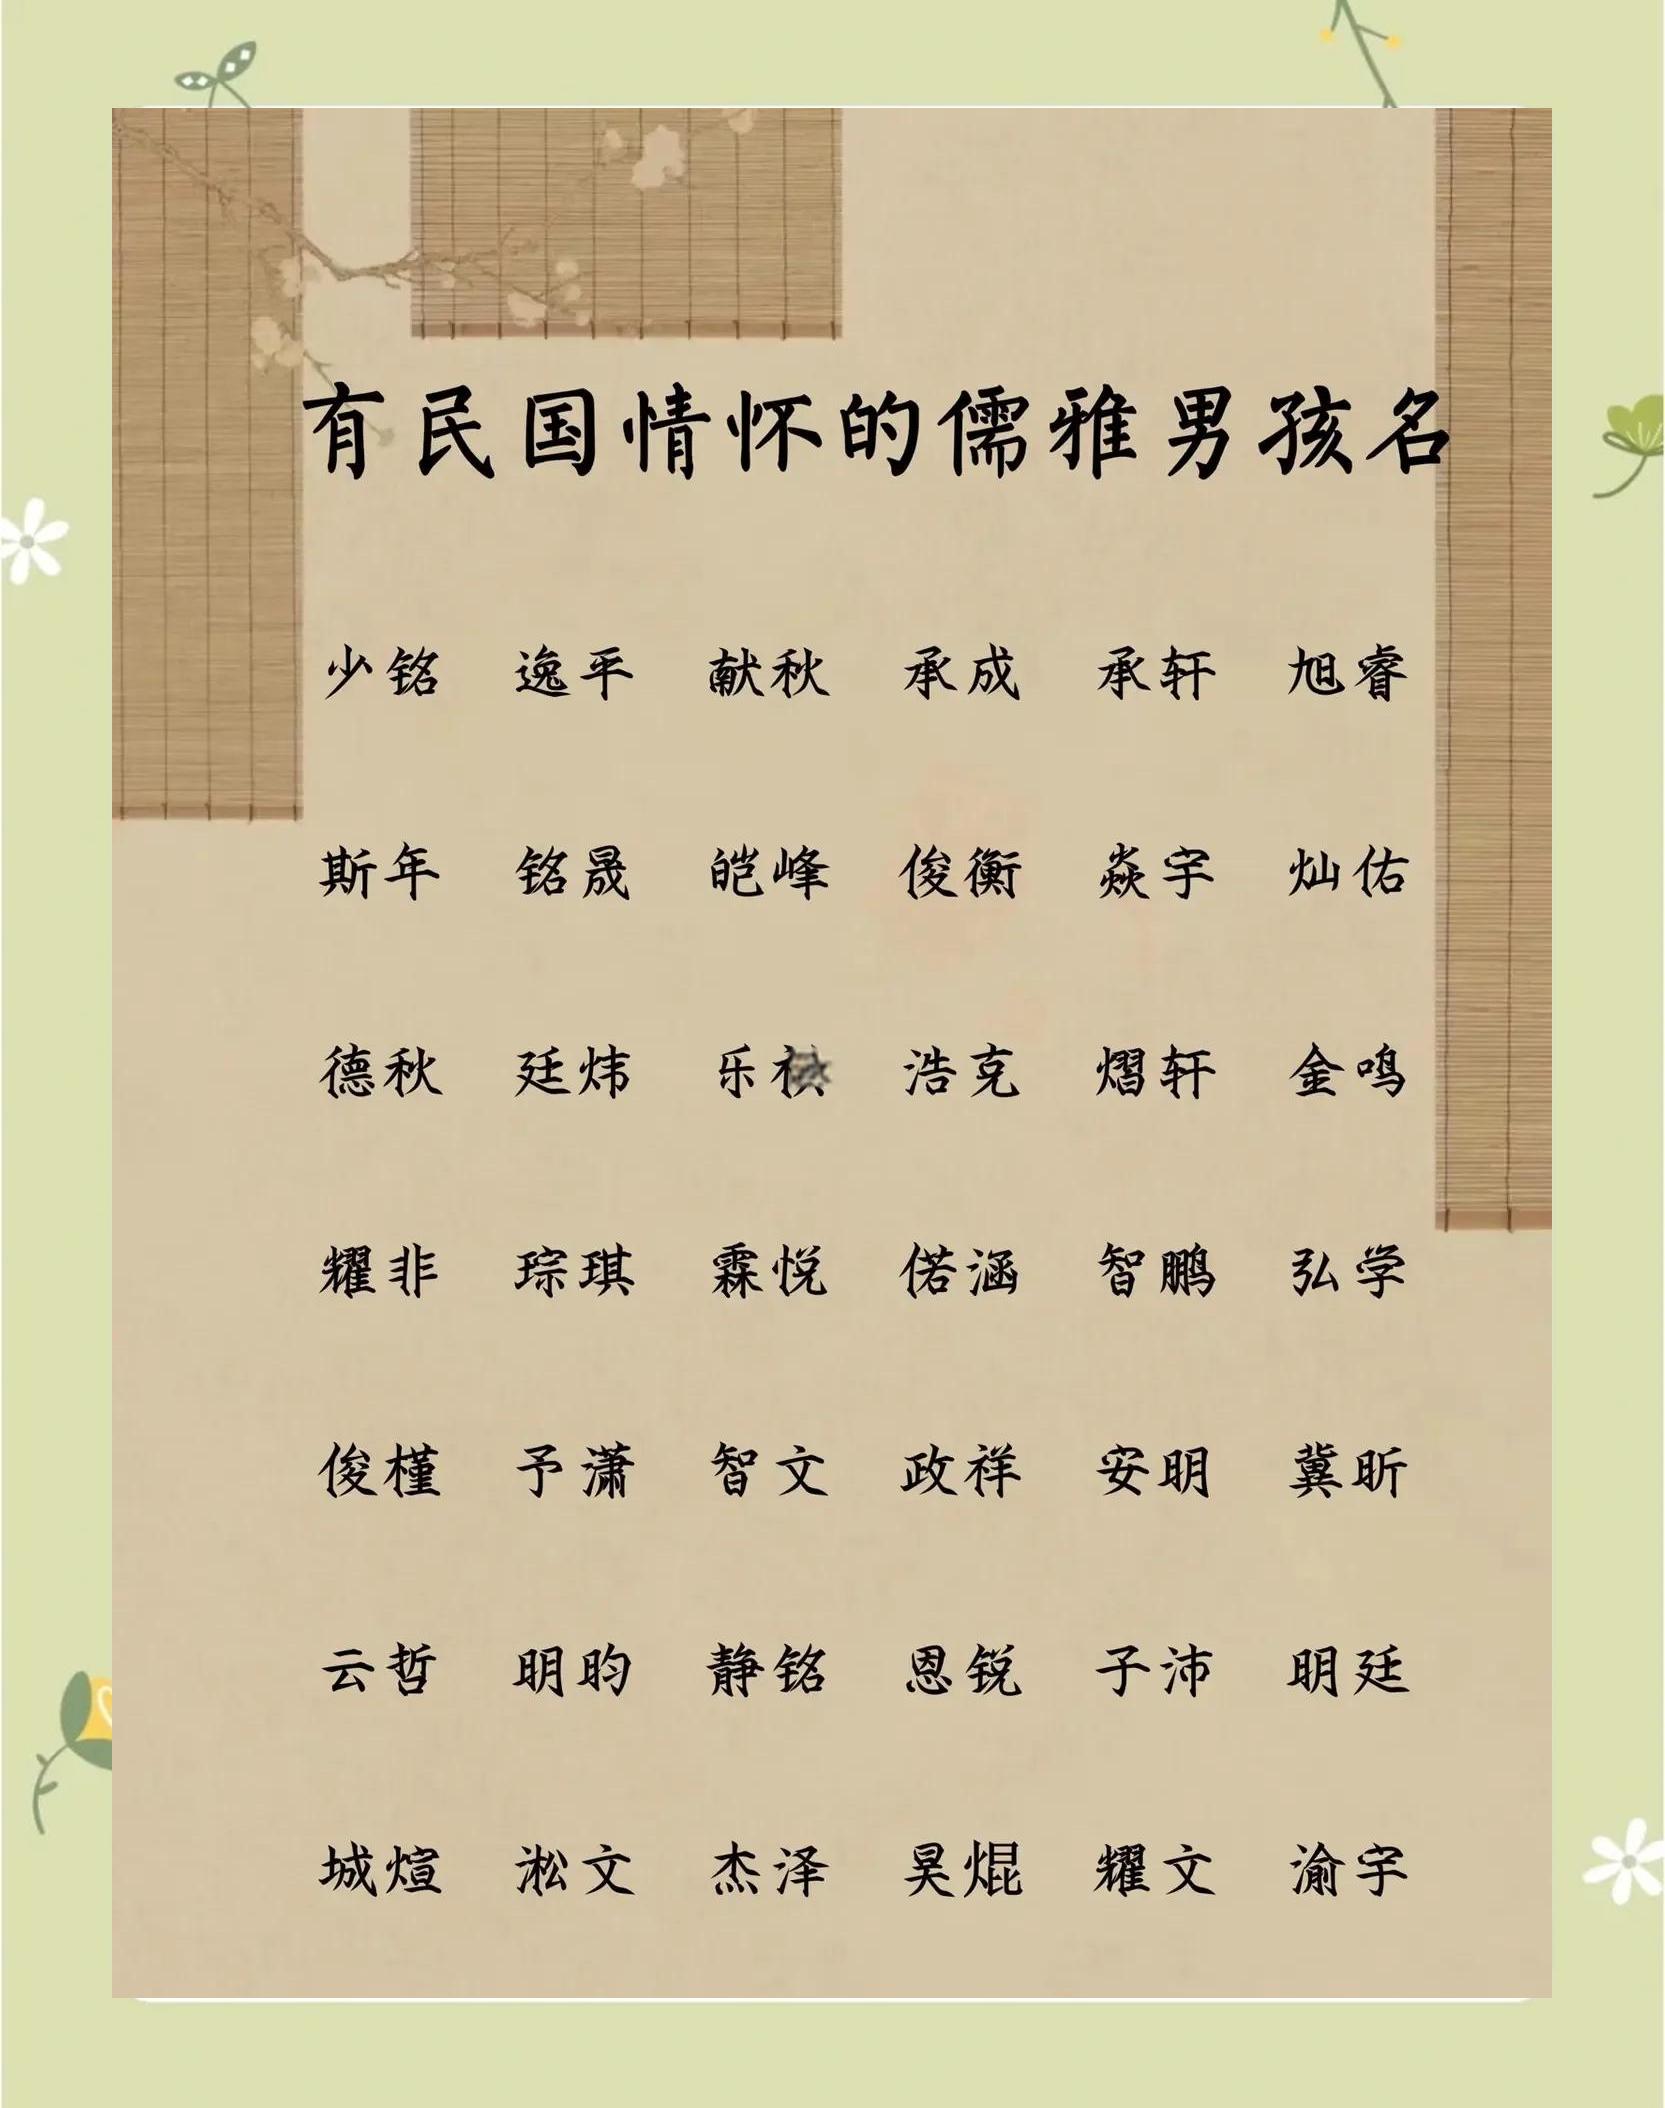 有民国情怀的儒雅男孩名
少铭 逸平 献秋 承成 承轩 旭睿
斯年 铭晟 皑峰 俊衡 焱宇 灿佑
德秋 廷炜 乐 浩克 熠轩 金鸣
耀非 琮琪 霖悦 偌涵 智鹏 弘学
俊槿 予潇 智文 政祥 安明 冀昕
云哲 明昀 静铭 恩锐 子沛 明廷
城煊 淞文 杰泽 昊焜 耀文 渝宇